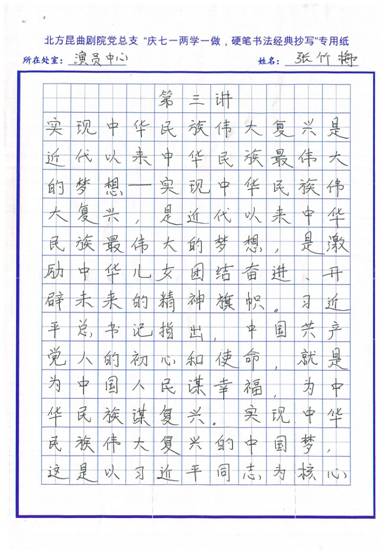 北方昆曲剧院党总支“庆七一两学一做，硬笔书法经典抄写”专用纸
所在处室：演员中心 姓名：张竹梅
第三讲
实现中华民族伟大复兴是
近代以来中华民族最伟大
的梦想——实现中华民族伟
大复兴，是近代以来中华
民族最伟大的梦想，是激
励中华儿女团结奋进、开
辟未来的精神旗帜。习近
平总书记指出，中国共产
党人的初心和使命，就是
为中国人民谋幸福，为中
华民族谋复兴。实现中华
民族伟大复兴的中国梦，
这是以习近平同志为核心